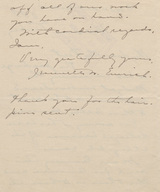 off all of our work
you have on hand.
With cordial regards,
I am,
Very gratefully yours,
Jeannette M.
Thank you for the hair-
pins sent!